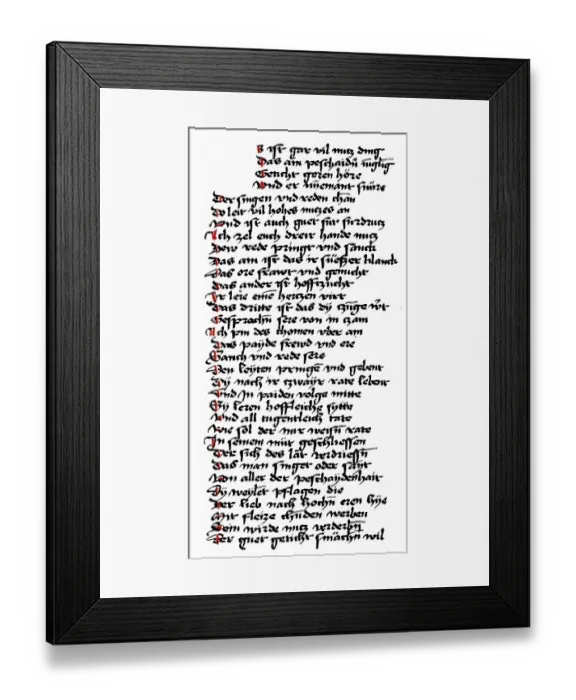 s ist gar vil nutz ding
Das ain peschaidn̄ iūglig̃
Geticht geren höre
Vnd er nyemant stüre
Der singen vnd reden chan
Do leit vil hohes nutzes an
Vnd ist auch guet für vrdrutz
Ich zel euch dreir hande nutz
Dew rede pringt vnd sanck
Das ain ist das ir süeszer klanck
Das ore frawt vnd gemücht
Das ander ist hoffzücht
Ir leie eine hertzen virt
Das dritte ist das dy czūge wt̄
Gesprachn̄ sere von in czam
Ich pin des chomen vber am
Das payde frewd vnd ere
Sanch vnd rede sere
Den leyten pringe vnd gebent
Dy nach ir czwayr rate lebent
Vnd In paiden volge mitte
Sy leren hoffleiche sytte
Vnd all tugentleich tate
Wie sol der mir weisn̄ rate
In seinem müt geschliessen
Der sich des lät verdriessn̄
Das man singet oder sait
Von aller der peschaydenhait
Dy weyler pflagen die
Der lieb nach hochn̄ eren hye
Mit fleize chunden werben
Dem wirde nutz verderbn̄
Der guet geticht smächn̄ wil